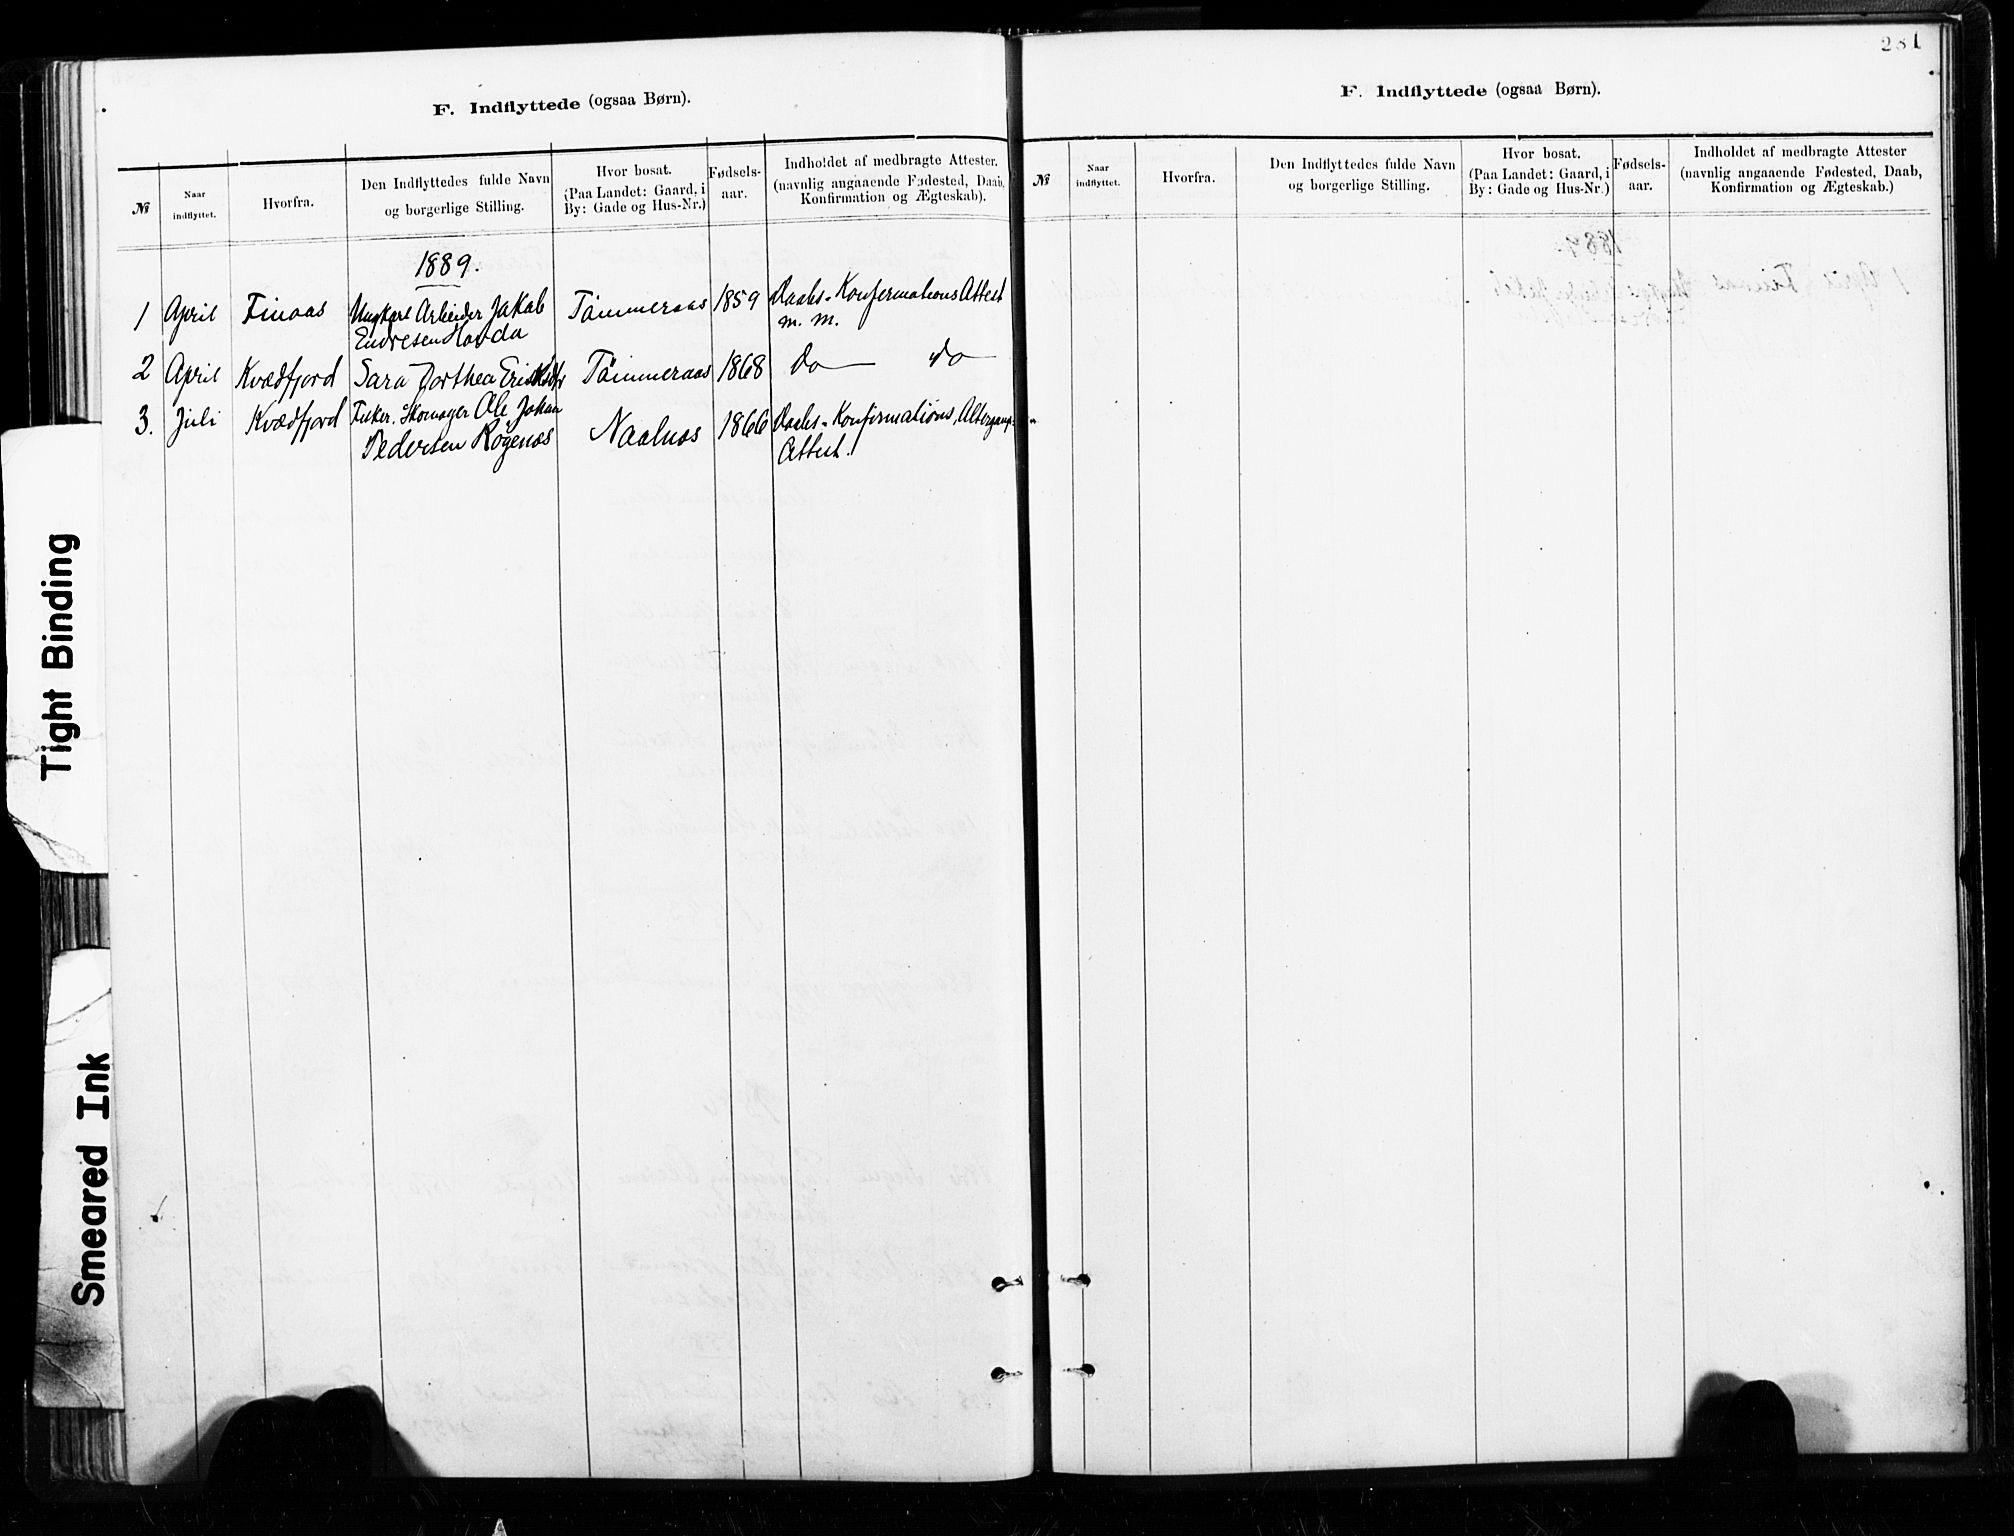 F. Indflyttede (ogsaa Børn).
№
Naar indflyttet.
Hvorfra.
Den Indflyttedes fulde Navn
og borgerlige Stilling.
Hvor bosat.
(Paa Landet: Gaard, i
By: Gade og Hus-Nr.)
Fødsels-
aar.
Indholdet af medbragte Attester.
(navnlig angaaende Fødested, Daab,
Konfirmation og Ægteskab).
1889.
1 April Finaas Ungkarl Arbeider Jakob Tømmeraas 1859 Daabs- Konfirmations Attest
Endresen Hovda m. m.
2 April Kvædfjord Sara Dorthea Tømmeraas 1868 do do
3. Juli Kvædfjord Skomager Ole Johan Naalnes 1866 Daabs- Konfirmations,
Pedersen Attest.
281
F. Indflyttede (ogsaa Børn).
№
Naar
indflyttet.
Hvorfra.
Den Indflyttedes fulde Navn
og borgerlige Stilling.
Hvor bosat.
(Paa Landet: Gaard, i
By: Gade og Hus-Nr.)
Fødsels-
aar.
Indholdet af medbragte Attester
(navnlig angaaende Fødested, Daab,
Konfirmation og Ægteskab.)
Tight Binding
Smeared Ink